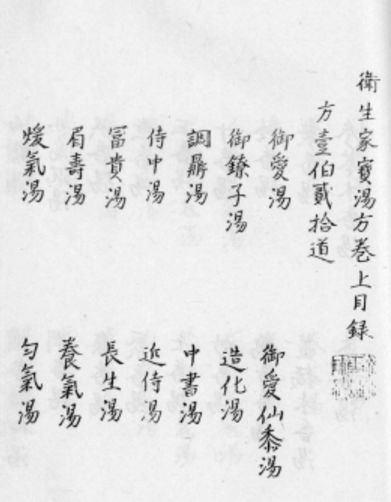 衛生家寳湯方卷上目録
方壹伯貳拾道
御愛湯 御愛仙黍湯
御鐐子湯 造化湯
調鼎湯 中書湯
侍中湯 近侍湯
冨貴湯 長生湯
眉壽湯 養氣湯
煖氣湯 匀氣湯